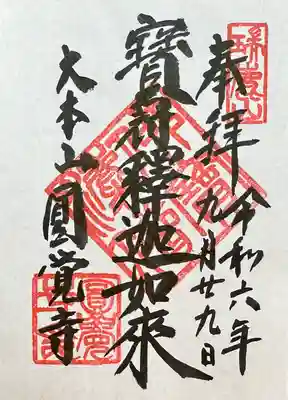 瑞鹿山
奉拝
令和六年
九月廿九日
寶冠釋迦如來
大本山圓覺寺